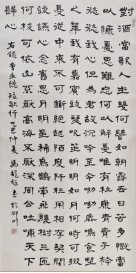 對酒當歌人生幾何譬如朝露去日苦多慨當
以慷憂思難忘何以解憂唯有杜康青青子衿
悠悠我心但為君故沈吟至今呦呦鹿鳴食野
之苹我有嘉賓鼓瑟吹笙明明如月何時可掇
憂從中來不可斷絕越陌度阡枉用相存契闊
談讌心念舊恩月明星稀烏鵲南飛繞樹三匝
何枝可依山不厭高水不厭深周公吐哺天下
歸心
右錄曹孟德短歌行